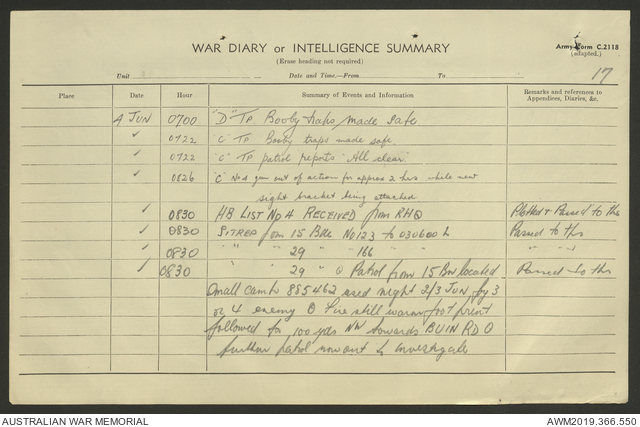 WAR DIARY or INTELLIGENCE SUMMARY
Army Form C.2118
(Erase heading not required)
(adapted.)
Unit Date and Time—From To
17
Place Date Hour Summary of Events and Information Remarks and references to
Appendices, Diaries, &c.
4 JUN 0700 "D" TP Booby traps made safe
✓ 0722 "C" TP Booby traps made safe
✓ 0722 "C" TP patrol reports "All clear"
✓ 0826 "C" No 4 gun out of action for approx 2 hrs while new
sight bracket being attached
✓ 0830 HB LIST No 4 RECEIVED from RHQ Plotted & Passed to tps
✓ 0830 SITREP from 15 Bde No 123 to 030600 L Passed to tps
0830 " " 29 " 166 " " "
✓ 0830 " 29 " Patrol from 15 Bn located Passed to tps
Small camp 885462 used night 2/3 JUN by 3
or 4 enemy Fire still warm foot print
followed for 100 yds NW towards BUIN RD
further patrol now out to investigate
AUSTRALIAN WAR MEMORIAL AWM2019.366.550